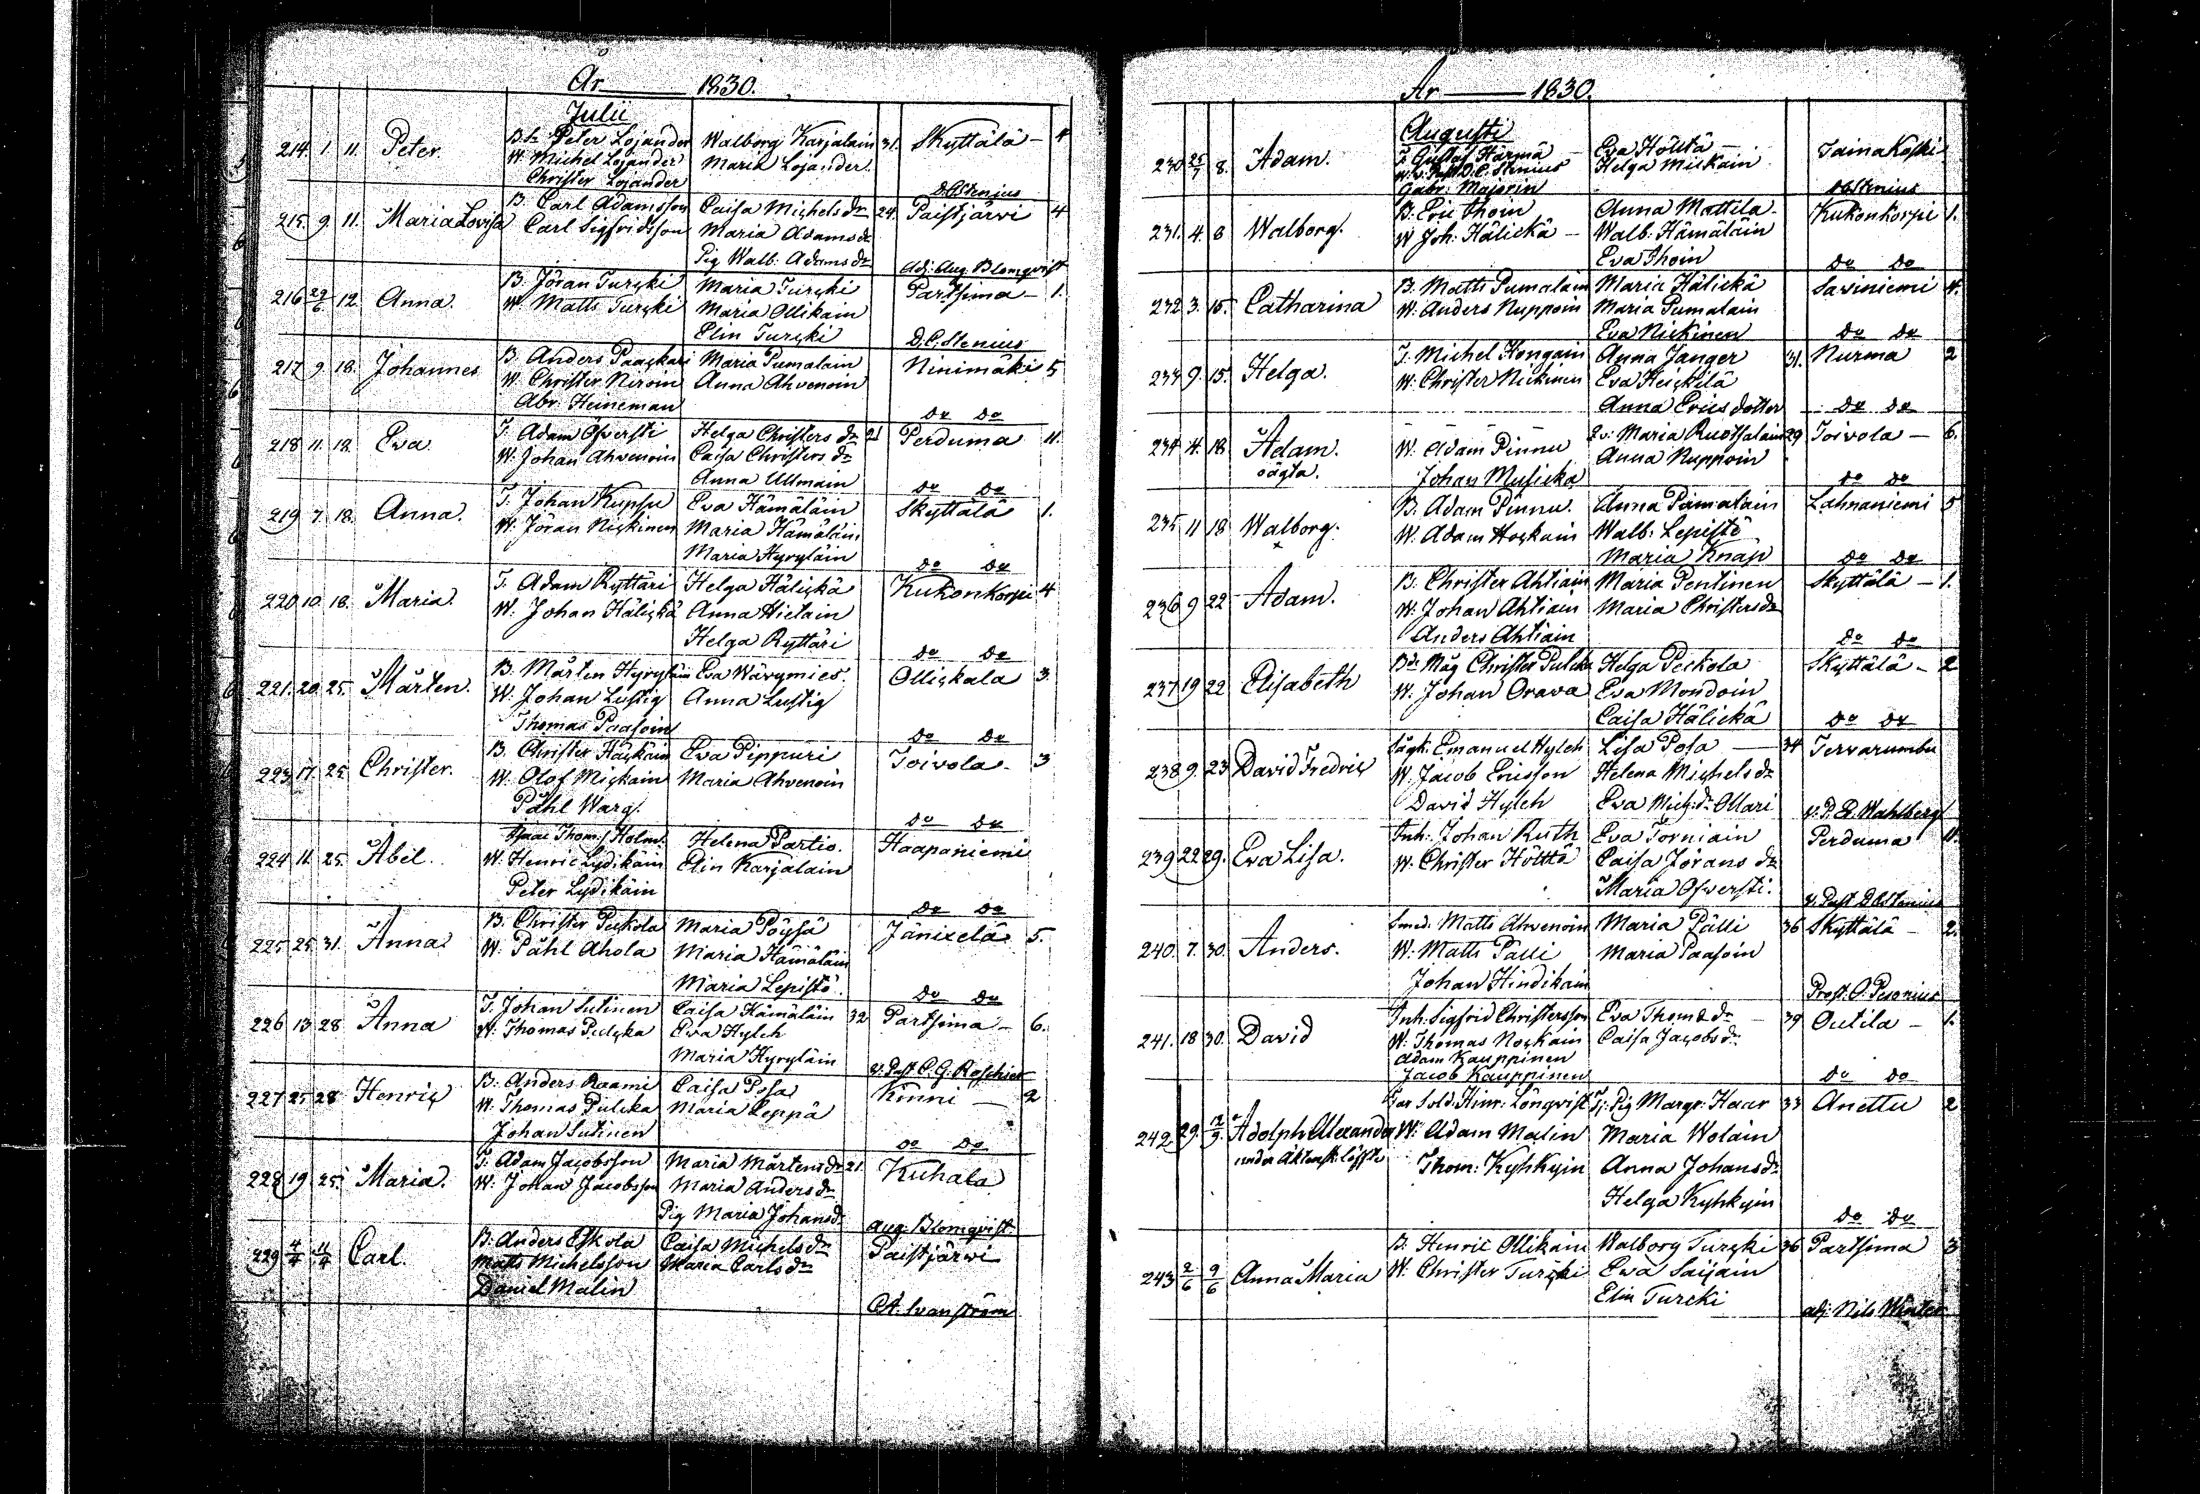 År 1830.
Julii
214. 1. 11. Peter. Bd: Peter Lojander Walborg Karjalain 31. Skyttälä – 4
W. Michel Lojander Maria Lojander.
Christer Lojander D.C. Stenius
215. 9. 11. Maria Lovisa B. Carl Adamsson Caisa Michels dr 24. Paistjärvi 4
Carl Sigfridsson Maria Adams dr
Pig Walb: Adams dr Adj: Aug. Blomqvist
216 29/6 12. Anna. B. Jöran Turcki Maria Turcki Partsima – 1.
W. Matts Turcki Maria Ollikain
Elin Turcki D.C. Stenius
217 9. 18. Johannes B. Anders Paackari Maria Pumalain Ninimäki 5
W. Christer Niroin Anna Ahvenoin
Abr. Heineman Do Do
218 11. 18. Eva. T. Adam Ofversti Helga Christers dr 21 Perduma 11.
W. Johan Ahvenoin Caisa Christers dr
Anna Ullmain Do Do
219 7. 18. Anna. T. Johan Kupsu Eva Hämäläin Skyttälä 1.
W. Jöran Nickinen Maria Hämäläin
Maria Hyryläin Do Do
220 10. 18. Maria. T. Adam Ryttäri Helga Hälickä Kukonkorpi 4
W. Johan Hälickä Anna Hietain
Helga Ryttäri Do Do
221. 20. 25. Mårten. B. Mårten Hyryläin Eva Wärymies. Ollickala 3.
W. Johan Lustig Anna Lustig
Thomas Paasoin Do Do
223. 17. 25. Christer. B. Christer Häckäin Eva Pippuri Toivola. 3
W. Olof Mickain Maria Ahvenoin
Påhl Warg. Do Do
224 11. 25. Abel. Isaac Thom: f. Holm. Helena Partio. Haapaniemi
W. Henric Lydikäin Elin Karjalain
Peter Lydikäin Do Do
225. 25. 31. Anna. B. Christer Peckola Maria Pöysä Jänixelä 5.
W. Påhl Ahola Maria Hämäläin
Maria Lepistö. Do Do
226 13. 28 Anna T. Johan Sutinen Caisa Hämäläin 32 Partsima – 6.
W. Thomas Pulcka Eva Hylch
Maria Hyryläin v. Past C.G. Roschier
227 25. 28. Henric B. Anders Raami Caisa Posa Kinni – 2
W. Thomas Pulcka Maria Leppä
Johan Sutinen Do Do
228 19. 25. Maria. T. Adam Jacobsson Maria Mårtens dr 21. Kuhala
W. Johan Jacobsson Maria Anders dr
Pig Maria Johans dr Aug: Blomqvist.
229 4/4 11/4 Carl. B. Anders Eskola Caisa Michels dr Paistjärvi
Matts Michelsson Maria Carls dr
Daniel Malin
År 1830.
Augusti
230 25/7 8. Adam. T. Gustaf Härmä – Eva Hölttä – Tainakoski
W. v. Past D.C. Stenius Helga Mickain
Gabr: Majorin D C Stenius
231. 4. 8 Walborg. B. Eric Thoin Anna Mattila. Kukonkorpi 1.
W Joh: Hälickä – Walb. Hämäläin
Eva Thoin Do Do
232. 3. 15. Catharina B. Matts Pumalain Maria Hälickä Saviniemi 4.
W. Anders Nuppoin Maria Pumalain
Eva Nickinen Do Do
233 9. 15. Helga. T. Michel Kongain Anna Janger 31. Nurma 2
W: Christer Nickinen Eva Heickilä
Anna Erics dotter Do Do
234 4. 18 Adam. W. Adam Pinnu Qv: Maria Ruotsalain 29 Toivola – 6.
oägta. Johan Musicka Anna Nuppoin Do Do
235. 11 18 Walborg. B. Adam Pinnu. Anna Pämäläin Lahnaniemi 5
W. Adam Hockain Walb: Lepistö
Maria Knap Do Do
236 9 22 Adam. B. Christer Ahtiain Maria Pentinen Skyttälä – 1.
W. Johan Ahtiain Maria Christers dr
Anders Ahtiain Do Do
237 19 22 Elisabeth Bd. Måg Christer Pulcka Helga Peckola Skyttälä – 2
W. Johan Orava Eva Mondoin
Caisa Hälickä Do Do
238 9. 23 David Fredric Emanuel Hylch Lisa Posa – 34 Tervarumbu
W. Jacob Ericsson Helena Michels dr
David Hylch Eva Mich: dr Ollari v. P. E. Wahlberg
239 22 29. Eva Lisa. Inh: Johan Ruth Eva Torniain Perduma 11.
W. Christer Hölttä Caisa Jörans dr
Maria Ofversti. v. Past D C Stenius
240. 7. 30. Anders. Smed. Matts Ahvenoin Maria Pälli 36 Skyttälä – 2.
W: Matts Pälli Maria Paasoin
Johan Hindikain Prost. O. Pesonius
241. 18 30. David Inh: Sigfrid Christersson Eva Thoms dr – 39 Outila – 1.
W: Thomas Nockain Caisa Jacobs dr
Adam Kauppinen
Jacob Kauppinen Do Do
242 29. 12/9. Adolph Alexander Far Sold. Hinr: Lönqvist Tj: Pig Margr: Haar 33 Anettu 2
under äktensk: löfte W: Adam Malin Maria Wolain
Thom: Kyhkyin Anna Johans dr
Helga Kyhkyin Do Do
243 2/6 9/6 Anna Maria B. Henric Ollikain Walborg Turcki 36 Partsima 3
W. Christer Turcki Eva Saijain
Elin Turcki adj: Nils Winter